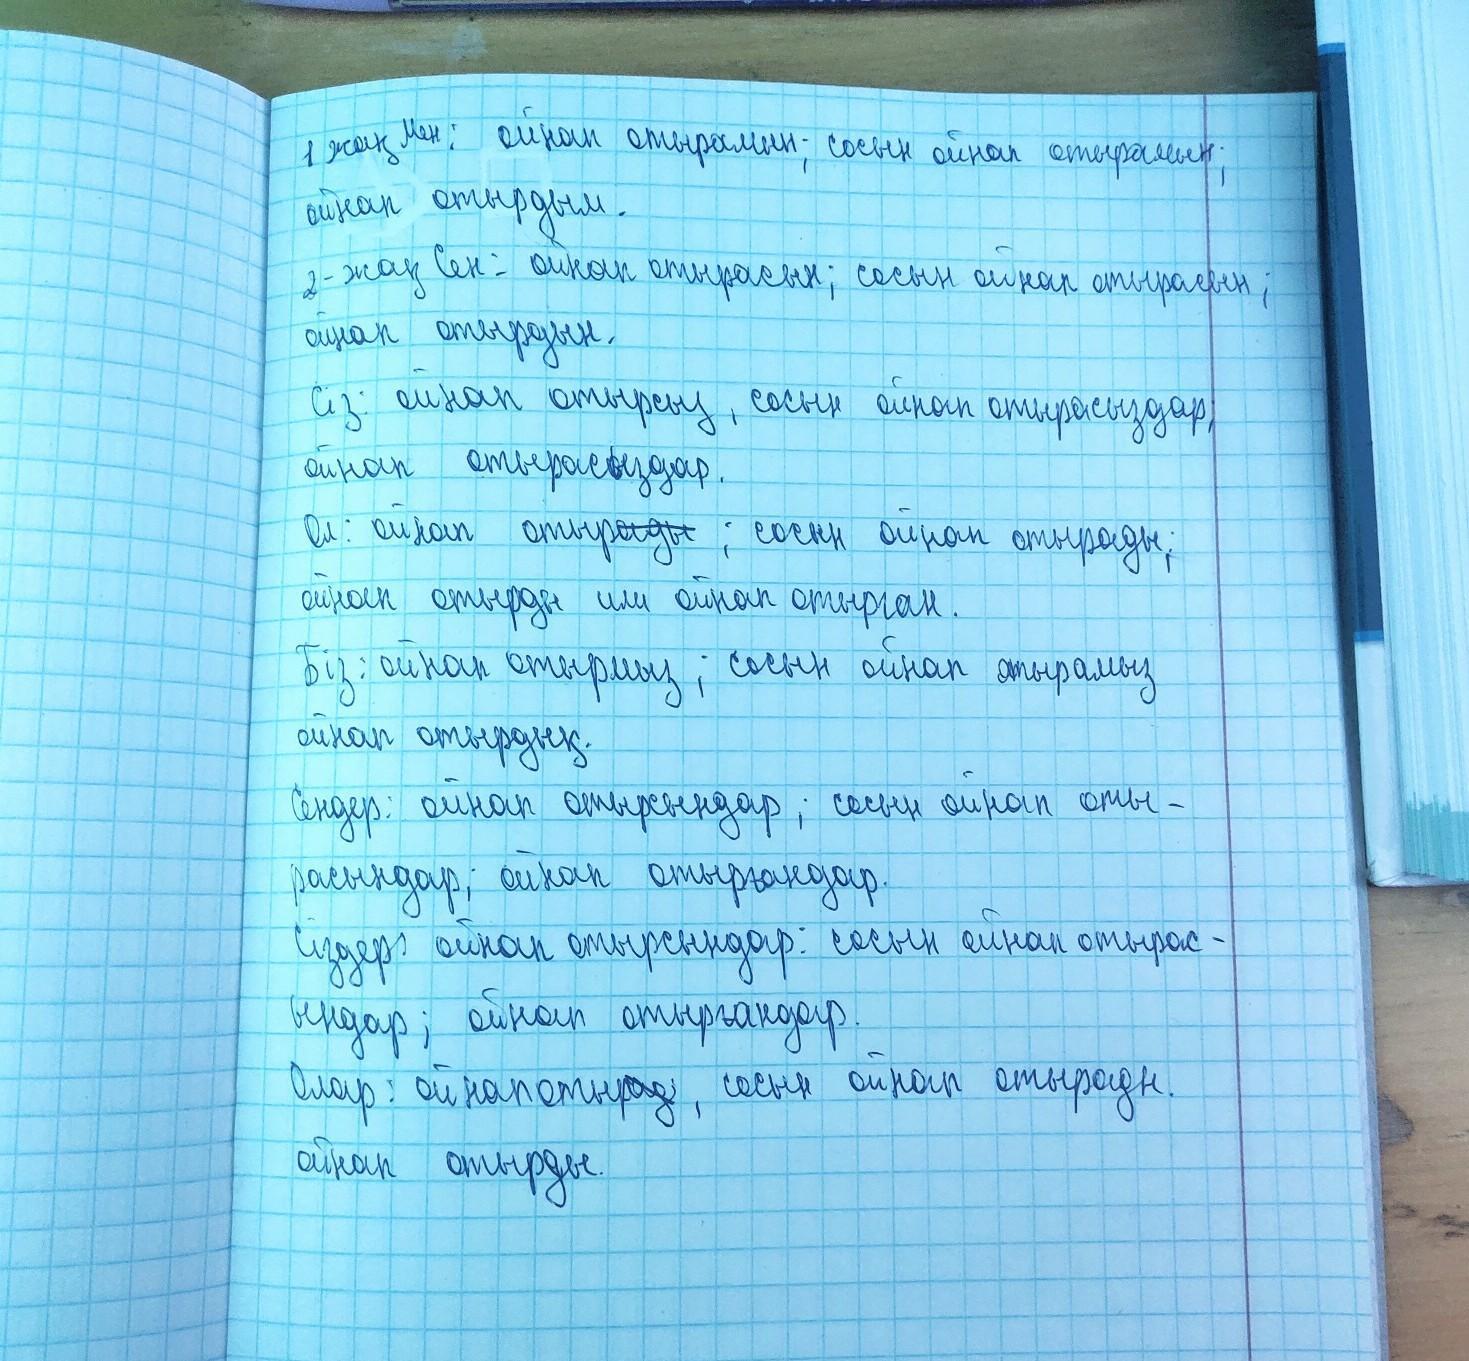 1 жақ Мен: ойнап отырамын; сосын ойнап отырамын;
ойнап отырдым.
2-жақ Сен: ойнап отырасын; сосын ойнап отырасын;
ойнап отырдын.
Сіз: ойнап отырсыз, сосын ойнап отырасыздар,
ойнап отырасыздар.
Ол: ойнап отырады; сосын ойнап отырады;
ойнап отырды или ойнап отырган.
Біз: ойнап отырмыз; сосын ойнап отырамыз
ойнап отырдық.
Сендер: ойнап отырсындар; сосын ойнап оты-
расындар; ойнап отырғандар.
Сіздер: ойнап отырсындар: сосын ойнап отырас-
ындар; ойнап отырғандар.
Олар: ойнап, сосын ойнап отырады.
ойнап отырды.